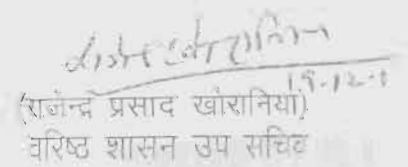 19-12-
(राजेन्द्र प्रसाद खोरानियां)
वरिष्ठ शासन उप सचिव